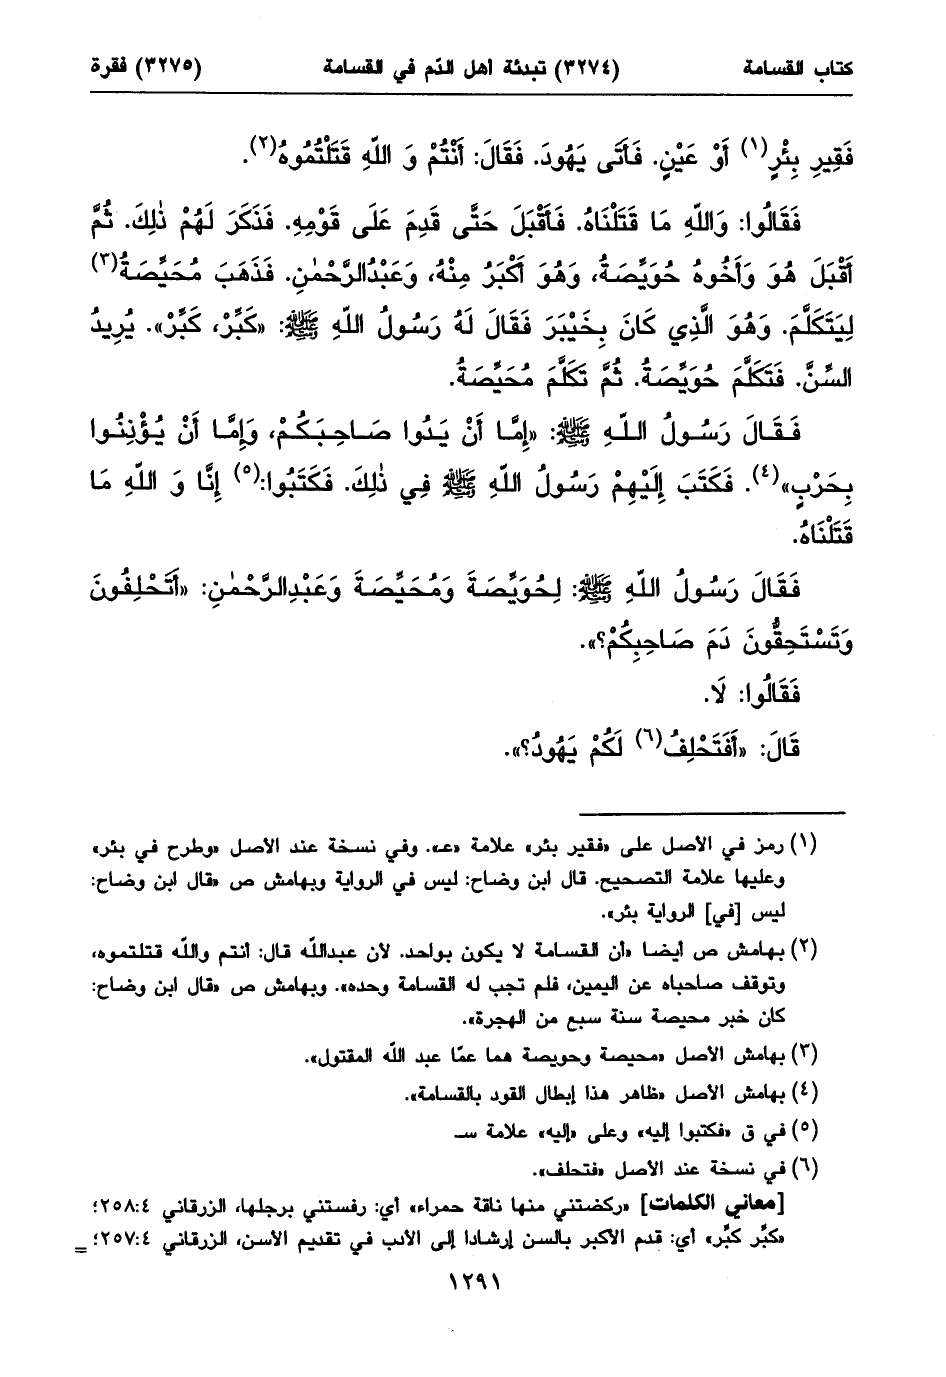 كتاب القسامة (٣٢٧٤) تبدئة أهل الدّم في القسامة (٣٢٧٥) فقرة
فَقِيرِ بِئْرٍ(١) أَوْ عَيْنٍ. فَأَتَى يَهُودَ. فَقَالَ: أَنْتُمْ وَ اللّهِ قَتَلْتُمُوهُ(٢).
فَقَالُوا: وَاللّهِ مَا قَتَلْنَاهُ. فَأَقْبَلَ حَتَّى قَدِمَ عَلَى قَوْمِهِ. فَذَكَرَ لَهُمْ ذٰلِكَ. ثُمَّ
أَقْبَلَ هُوَ وَأَخُوهُ حُوَيِّصَةُ، وَهُوَ أَكْبَرُ مِنْهُ، وَعَبْدُالرَّحْمٰنِ. فَذَهَبَ مُحَيِّصَةُ(٣)
لِيَتَكَلَّمَ. وَهُوَ الَّذِي كَانَ بِخَيْبَرَ فَقَالَ لَهُ رَسُولُ اللّهِ ﷺ: «كَبِّرْ، كَبِّرْ». يُرِيدُ
السِّنَّ. فَتَكَلَّمَ حُوَيِّصَةُ. ثُمَّ تَكَلَّمَ مُحَيِّصَةُ.
فَقَالَ رَسُولُ اللّهِ ﷺ: «إِمَّا أَنْ يَدُوا صَاحِبَكُمْ، وَإِمَّا أَنْ يُؤْذِنُوا
بِحَرْبٍ»(٤). فَكَتَبَ إِلَيْهِمْ رَسُولُ اللّهِ ﷺ فِي ذٰلِكَ. فَكَتَبُوا:(٥) إِنَّا وَ اللّهِ مَا
قَتَلْنَاهُ.
فَقَالَ رَسُولُ اللّهِ ﷺ: لِحُوَيِّصَةَ وَمُحَيِّصَةَ وَعَبْدِالرَّحْمٰنِ: «أَتَحْلِفُونَ
وَتَسْتَحِقُّونَ دَمَ صَاحِبِكُمْ؟».
فَقَالُوا: لَا.
قَالَ: «أَفَتَحْلِفُ(٦) لَكُمْ يَهُودُ؟».
(١) رمز في الأصل على «فقير بئر» علامة «عـ». وفي نسخة عند الأصل «وطرح في بئر»
وعليها علامة التصحيح. قال ابن وضاح: ليس في الرواية وبهامش ص «قال ابن وضاح:
ليس [في] الرواية بئر».
(٢) بهامش ص أيضا «أن القسامة لا يكون بواحد. لأن عبدالله قال: أنتم والله قتلتموه،
وتوقف صاحباه عن اليمين، فلم تجب له القسامة وحده». وبهامش ص «قال ابن وضاح:
كان خبر محيصة سنة سبع من الهجرة».
(٣) بهامش الأصل «محيصة وحويصة هما عمّا عبد الله المقتول».
(٤) بهامش الأصل «ظاهر هذا إبطال القود بالقسامة».
(٥) في ق «فكتبوا إليه» وعلى «إليه» علامة سـ
(٦) في نسخة عند الأصل «فتحلف».
[معاني الكلمات] «ركضتني منها ناقة حمراء» أي: رفستني برجلها، الزرقاني ٢٥٨:٤؛
«كبِّر كبِّر» أي: قدم الأكبر بالسن إرشادا إلى الأدب في تقديم الأسن، الزرقاني ٢٥٧:٤؛ =
١٢٩١